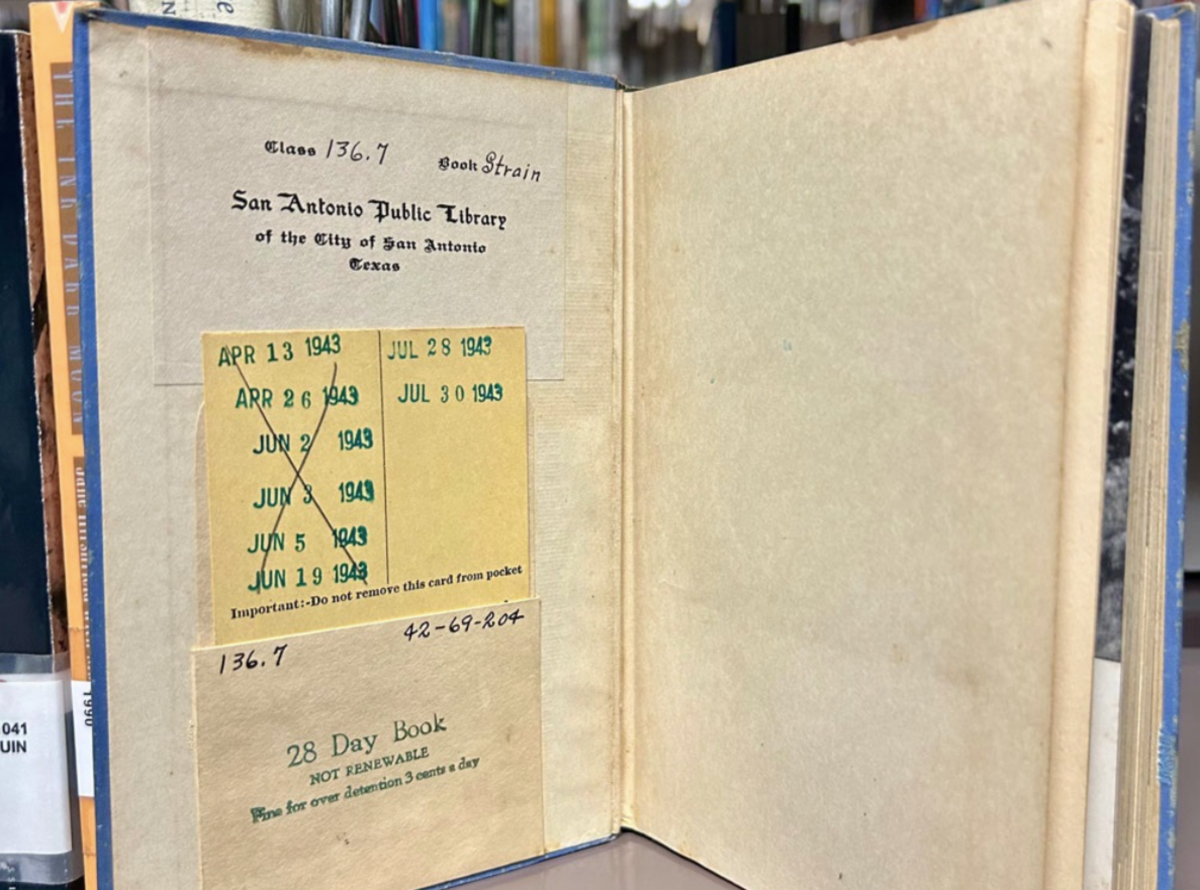 Class 136.7 Book Strain
San Antonio Public Library
of the City of San Antonio
Texas
APR 13 1943
APR 26 1943
JUN 2 1943
JUN 3 1943
JUN 5 1943
JUN 19 1943
JUL 28 1943
JUL 30 1943
Important:-Do not remove this card from pocket
42-69-204
136.7
28 Day Book
NOT RENEWABLE
Fine for over detention 3 cents a day
THE INK DARK MOON
1990
041
UIN